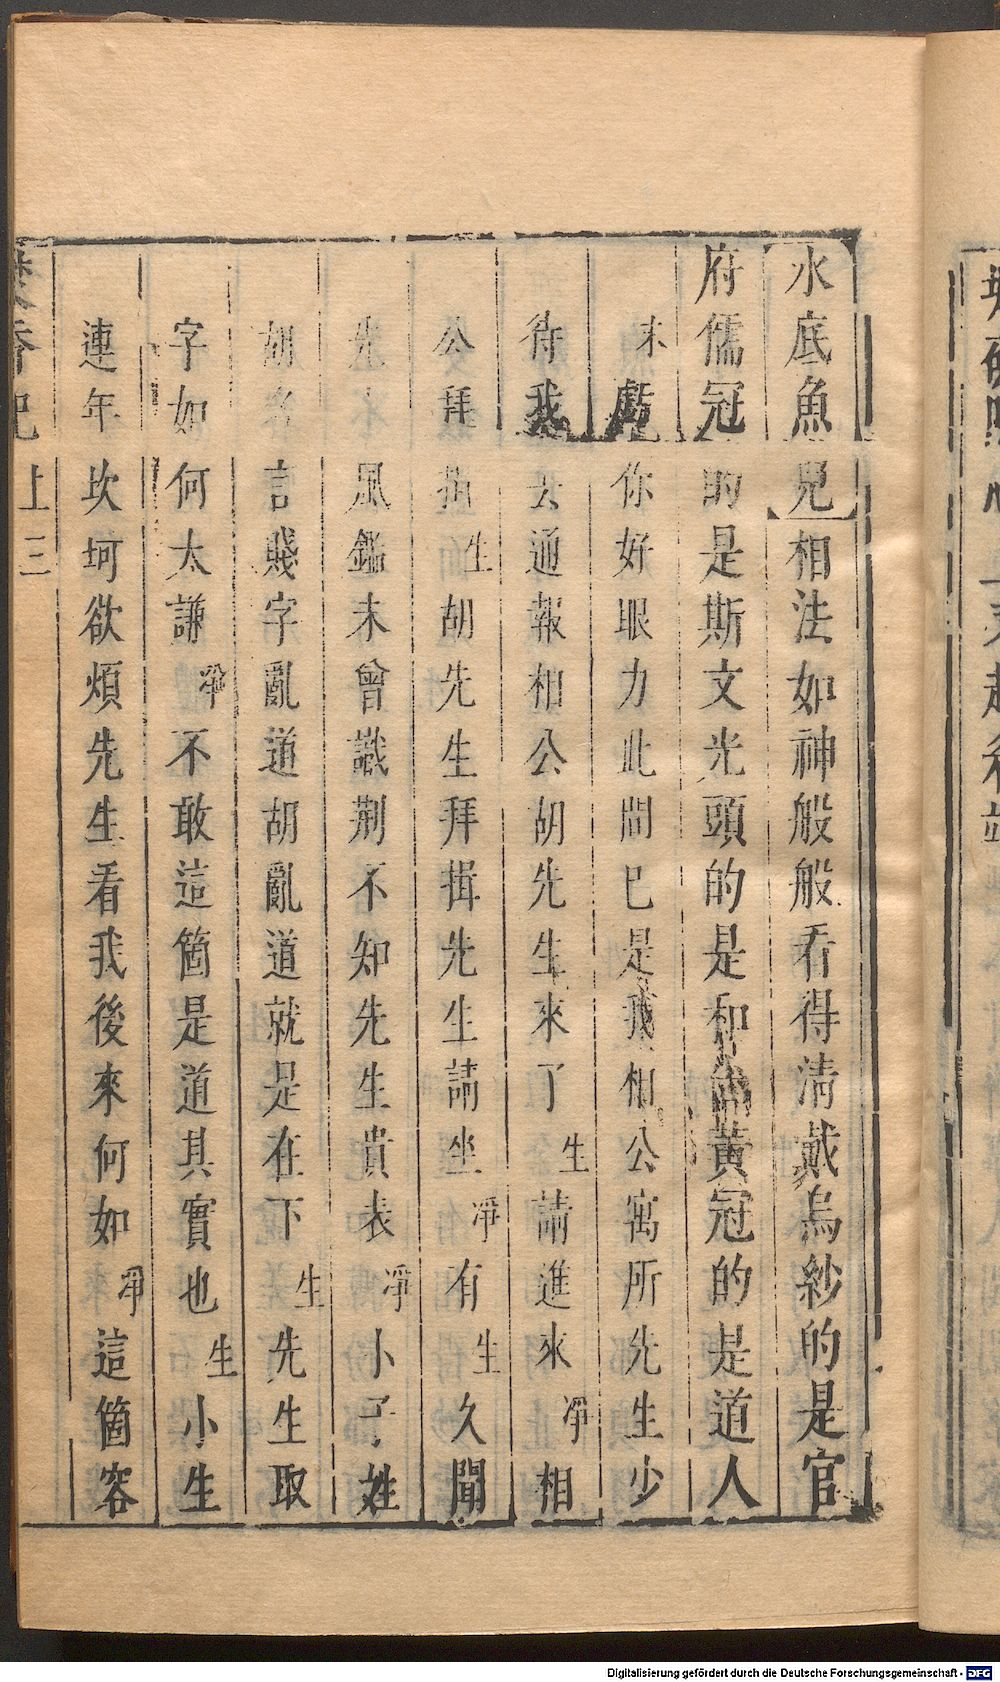 水底魚兒相法如神般般看得清戴烏紗的是官
府儒冠的是斯文光頭的是和尚黃冠的是道人
末虧你好眼力此間已是我相公寓所先生少
待我去通報相公胡先生來了生請進來淨相
公拜揖生胡先生拜揖先生請坐淨有生久聞
風鑑未曾識荆不知先生貴表淨小子姓
胡名言賤字亂道胡亂道就是在下生先生取
字如何太謙淨不敢這箇是道其實也生小生
連年坎坷欲煩先生看我後來何如淨這箇容
香記 上 三
Digitalisierung gefördert durch die Deutsche Forschungsgemeinschaft - DFG